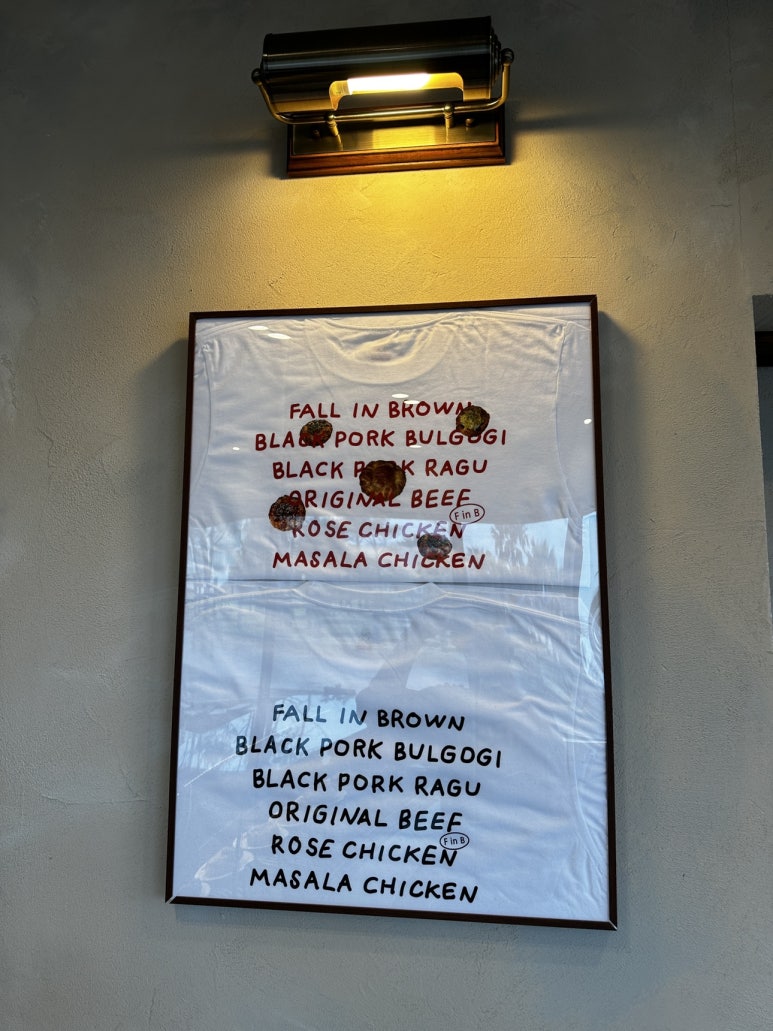 FALL IN BROWN
BLACK PORK BULGOGI
BLACK PORK RAGU
ORIGINAL BEEF
F in B
ROSE CHICKEN
MASALA CHICKEN
FALL IN BROWN
BLACK PORK BULGOGI
BLACK PORK RAGU
ORIGINAL BEEF
F in B
ROSE CHICKEN
MASALA CHICKEN